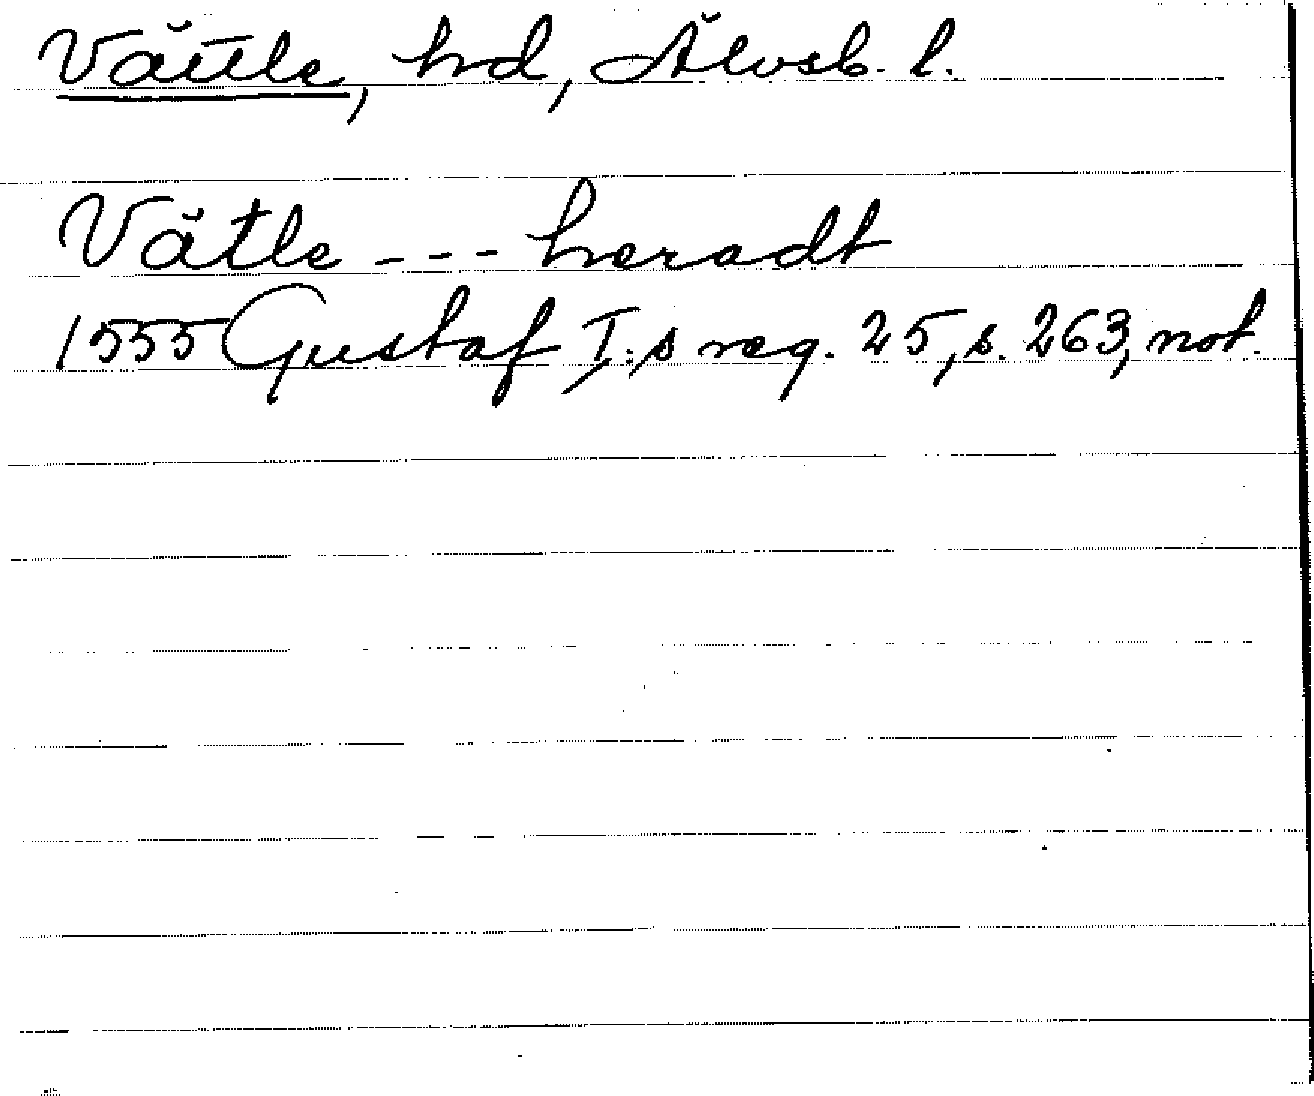 Vättle, hd, Älvsb. l.
Vätle --- heradt
1555 Gustaf I:s reg. 25, s. 263, not.